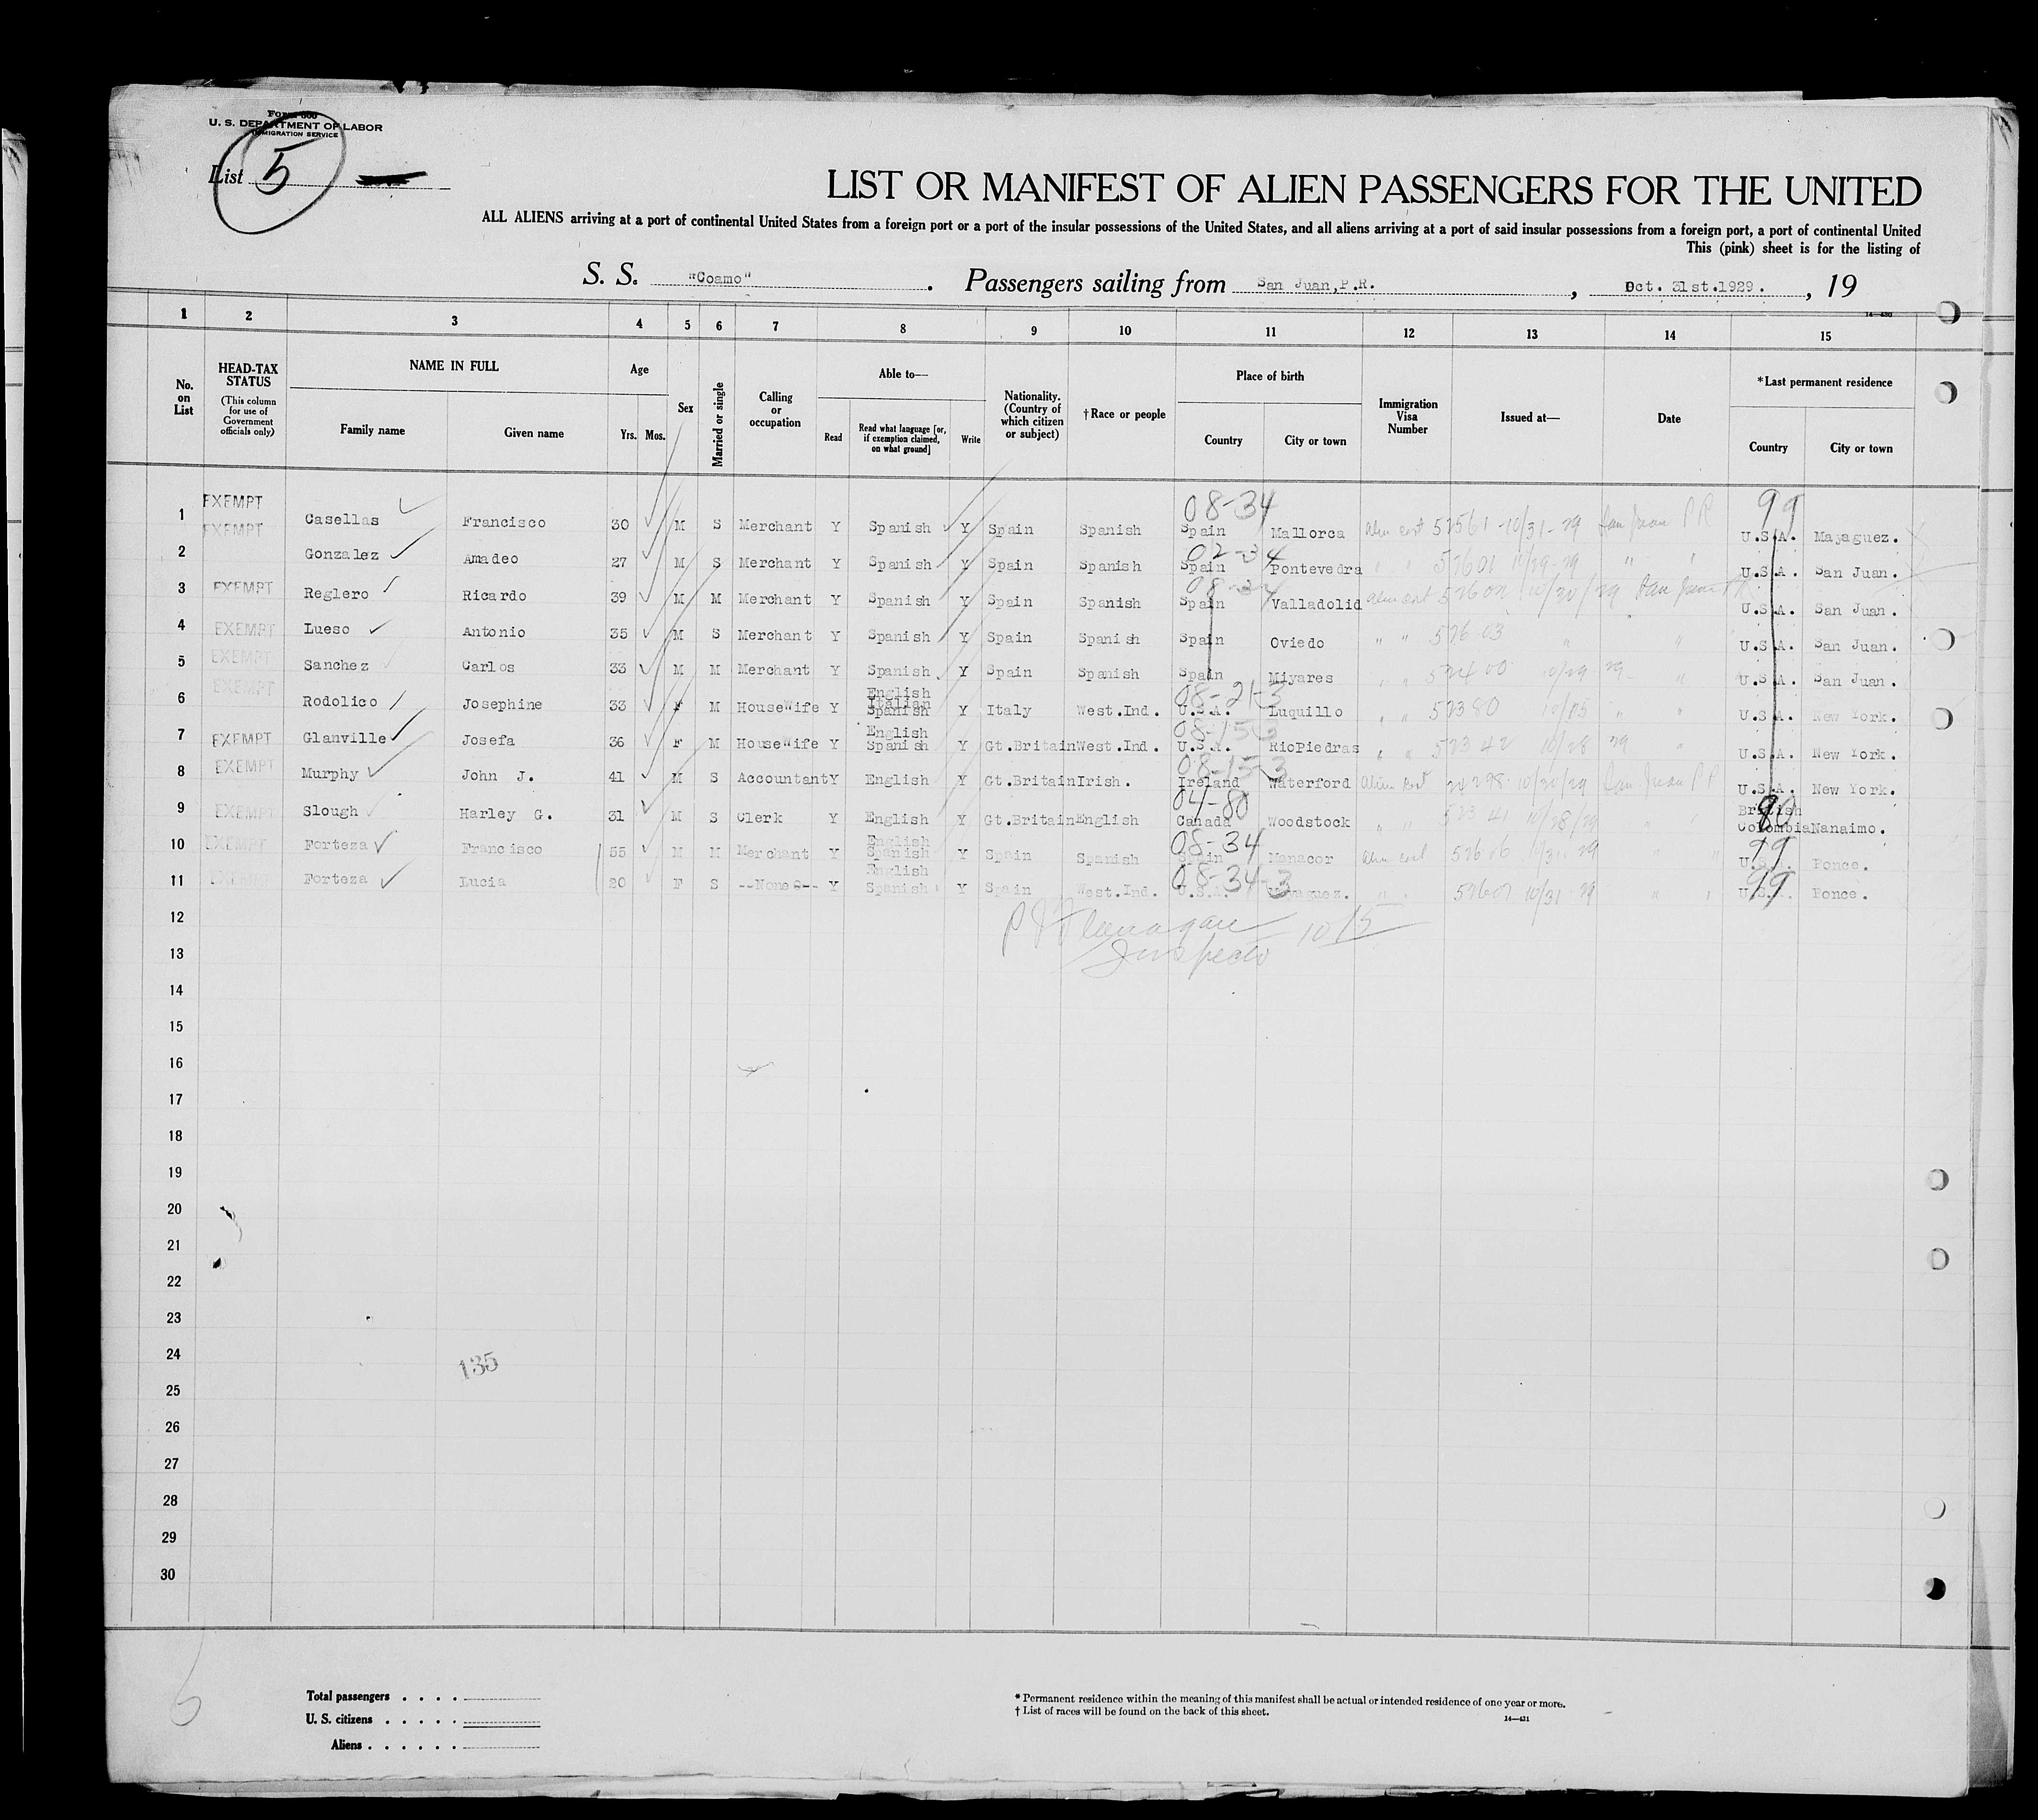 Form 500
U. S. DEPARTMENT OF LABOR
IMMIGRATION SERVICE
List 5
LIST OR MANIFEST OF ALIEN PASSENGERS FOR THE UNITED
ALL ALIENS arriving at a port of continental United States from a foreign port or a port of the insular possessions of the United States, and all aliens arriving at a port of said insular possessions from a foreign port, a port of continental United
This (pink) sheet is for the listing of
S. S. "Coamo" . Passengers sailing from San Juan,P.R. , Oct. 31st.1929. , 19
14-430
1 2 3 4 5 6 7 8 9 10 11 12 13 14 15
No. on List
HEAD-TAX STATUS (This column for use of Government officials only)
NAME IN FULL Family name Given name
Age Yrs. Mos.
Sex
Married or single
Calling or occupation
Able to— Read Read what language [or, if exemption claimed, on what ground] Write
Nationality. (Country of which citizen or subject)
†Race or people
Place of birth Country City or town
Immigration Visa Number
Issued at—
Date
*Last permanent residence Country City or town
EXEMPT 08-34 99
1 EXEMPT Casellas Francisco 30 M S Merchant Y Spanish Y Spain Spanish Spain Mallorca 52561 10/31-29 San Juan PR U.S.A. Mayaguez.
02-34
2 Gonzalez Amadeo 27 M S Merchant Y Spanish Y Spain Spanish Spain Pontevedra " " 52601 10/29-29 " " U.S.A. San Juan.
3 EXEMPT Reglero Ricardo 39 M M Merchant Y Spanish Y Spain Spanish Spain Valladolid 52602 10/30/29 San Juan U.S.A. San Juan.
4 EXEMPT Lueso Antonio 35 M S Merchant Y Spanish Y Spain Spanish Spain Oviedo " " 52603 " " U.S.A. San Juan.
5 EXEMPT Sanchez Carlos 33 M M Merchant Y Spanish Y Spain Spanish Spain Miyares " " 52400 10/29 29 " U.S.A. San Juan.
EXEMPT English 08-21-3
6 Rodolico Josephine 33 F M HouseWife Y Italian Spanish Y Italy West.Ind. U.S.A. Luquillo " " 52380 " " U.S.A. New York.
English
7 EXEMPT Glanville Josefa 36 F M HouseWife Y Spanish Y Gt.Britain West.Ind. U.S.A. RioPiedras " " 52342 10/28 29 " U.S.A. New York.
08-15-3
8 EXEMPT Murphy John J. 41 M S Accountant Y English Y Gt.Britain Irish. Ireland Waterford 24298 10/30/29 San Juan PR U.S.A. New York.
04-80 80
9 EXEMPT Slough Harley G. 31 M S Clerk Y English Y Gt.Britain English Canada Woodstock " " 52341 10/28/29 British Colombia Nanaimo.
English 08-34 99
10 EXEMPT Forteza Francisco 55 M M Merchant Y Spanish Y Spain Spanish Spain Manacor 52606 10/31-29 " " U.S.A. Ponce.
English 08-34-3 99
11 EXEMPT Forteza Lucia 20 F S --None-- Y Spanish Y Spain West.Ind. U.S.A. Mayaguez. " " 52607 10/31-29 " " U.S.A. Ponce.
12 P J Flanagan 10/15
13 Inspector
14
15
16
17
18
19
20
21
22
23
24
135
25
26
27
28
29
30
Total passengers . . . .
U. S. citizens . . . . .
Aliens . . . . . .
* Permanent residence within the meaning of this manifest shall be actual or intended residence of one year or more.
† List of races will be found on the back of this sheet.
14—431